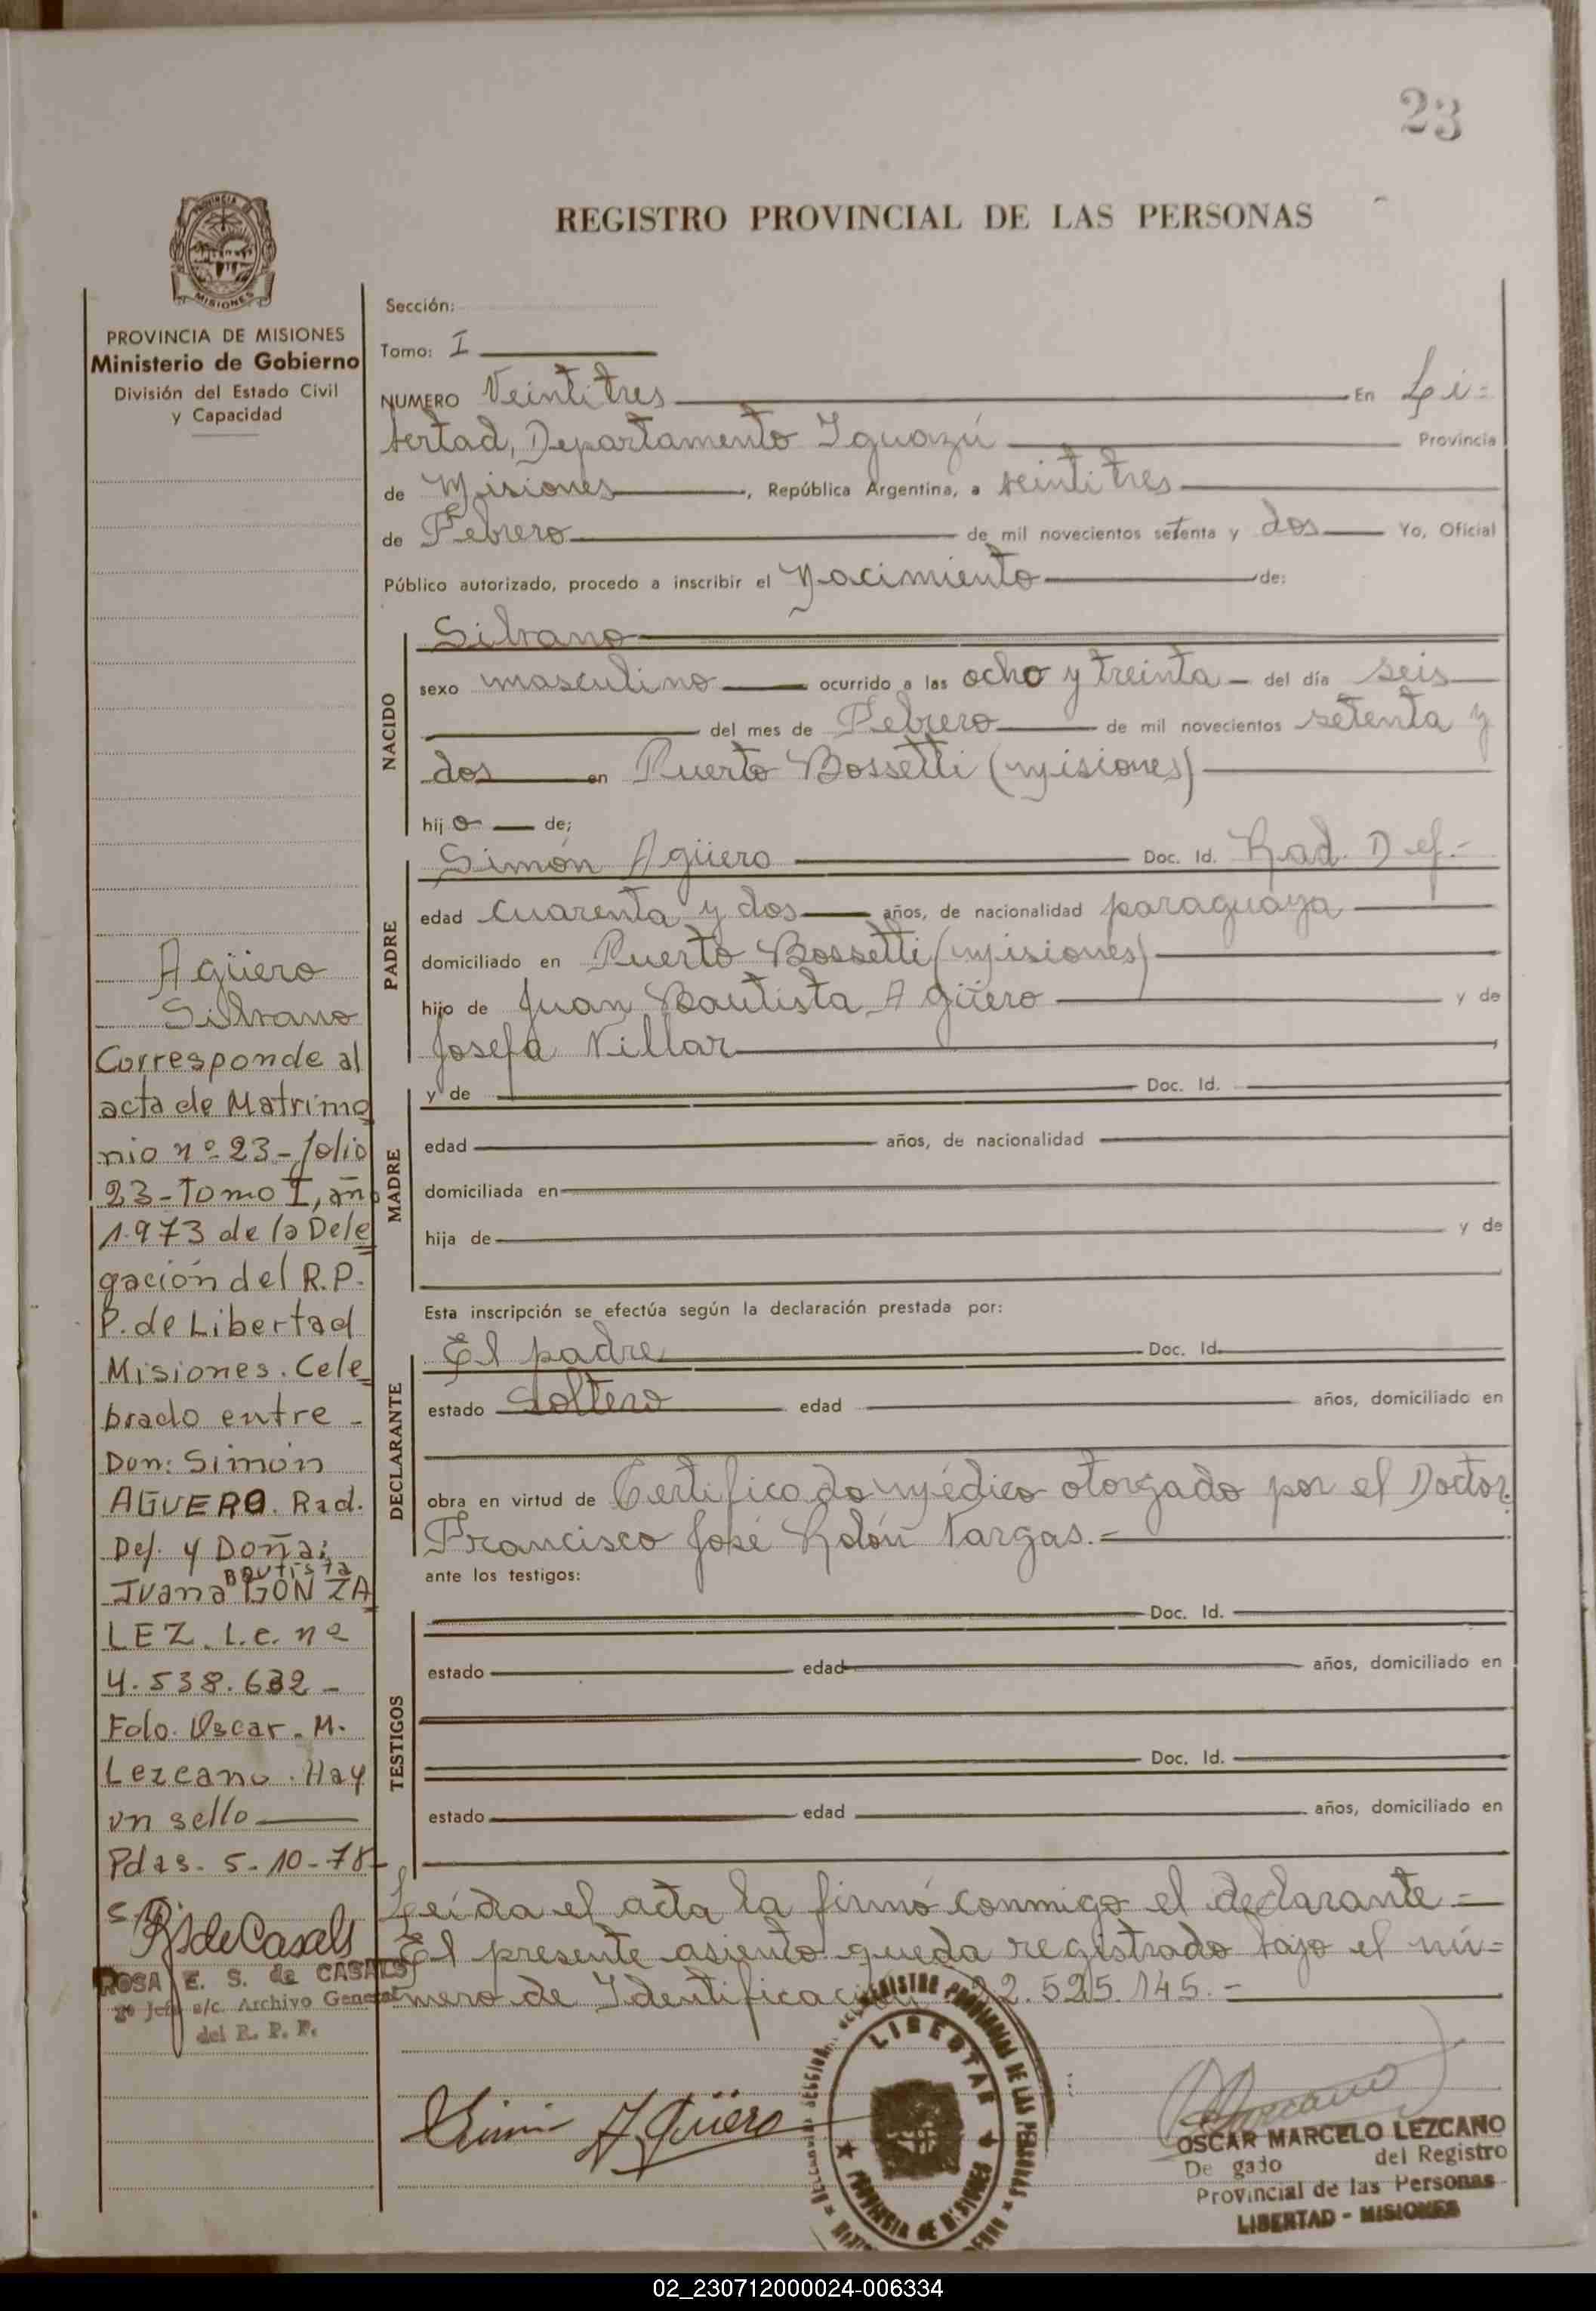 23
REGISTRO PROVINCIAL DE LAS PERSONAS
MISIONES
PROVINCIA DE MISIONES
Ministerio de Gobierno
División del Estado Civil
y Capacidad
Sección:
Tomo: I
NUMERO Veintitres En Li=
bertad, Departamento Iguazú Provincia
de Misiones, República Argentina, a veintitres
de Febrero de mil novecientos setenta y dos Yo, Oficial
Público autorizado, procedo a inscribir el Nacimiento de:
NACIDO
Silvano
sexo masculino ocurrido a las ocho y treinta del día seis
del mes de Febrero de mil novecientos setenta y
dos en Puerto Bossetti (Misiones)
hijo de;
PADRE
Simón Agüero Doc. Id. Rad. Def.-
edad cuarenta y dos años, de nacionalidad paraguaya
domiciliado en Puerto Bossetti (Misiones)
hijo de Juan Bautista Agüero y de
Josefa Villar
MADRE
y de Doc. Id.
edad años, de nacionalidad
domiciliada en
hija de y de
Esta inscripción se efectúa según la declaración prestada por:
DECLARANTE
El padre Doc. Id.
estado Soltero edad años, domiciliado en
obra en virtud de Certificado Médico otorgado por el Doctor
Francisco José Rolón Vargas.=
ante los testigos:
TESTIGOS
Doc. Id.
estado edad años, domiciliado en
Doc. Id.
estado edad años, domiciliado en
Leída el acta la firmó conmigo el declarante=
El presente asiento queda registrado bajo el nú=
mero de Identificación 22.525.145.-
Agüero
Silvano
Corresponde al
acta de Matrimo
nio nº 23-folio
23-Tomo I, año
1.973 de la Dele
gación del R.P.
P. de Libertad
Misiones. Cele
brado entre -
Don: Simón
AGUERO. Rad.
Def. y Doña:
Juana Bautista GONZA
LEZ. L.C. nº
4.538.632-
Fdo. Oscar. M.
Lezcano. Hay
un sello
Pdas. 5-10-78
RSdeCasals
ROSA E. S. de CASALS
2º Jefe a/c. Archivo General
del R. P. P.
Simón Agüero
REGISTRO PROVINCIAL DE LAS PERSONAS
LIBERTAD
PROVINCIA DE MISIONES
Lezcano
OSCAR MARCELO LEZCANO
De gado del Registro
Provincial de las Personas
LIBERTAD - MISIONES
02_230712000024-006334